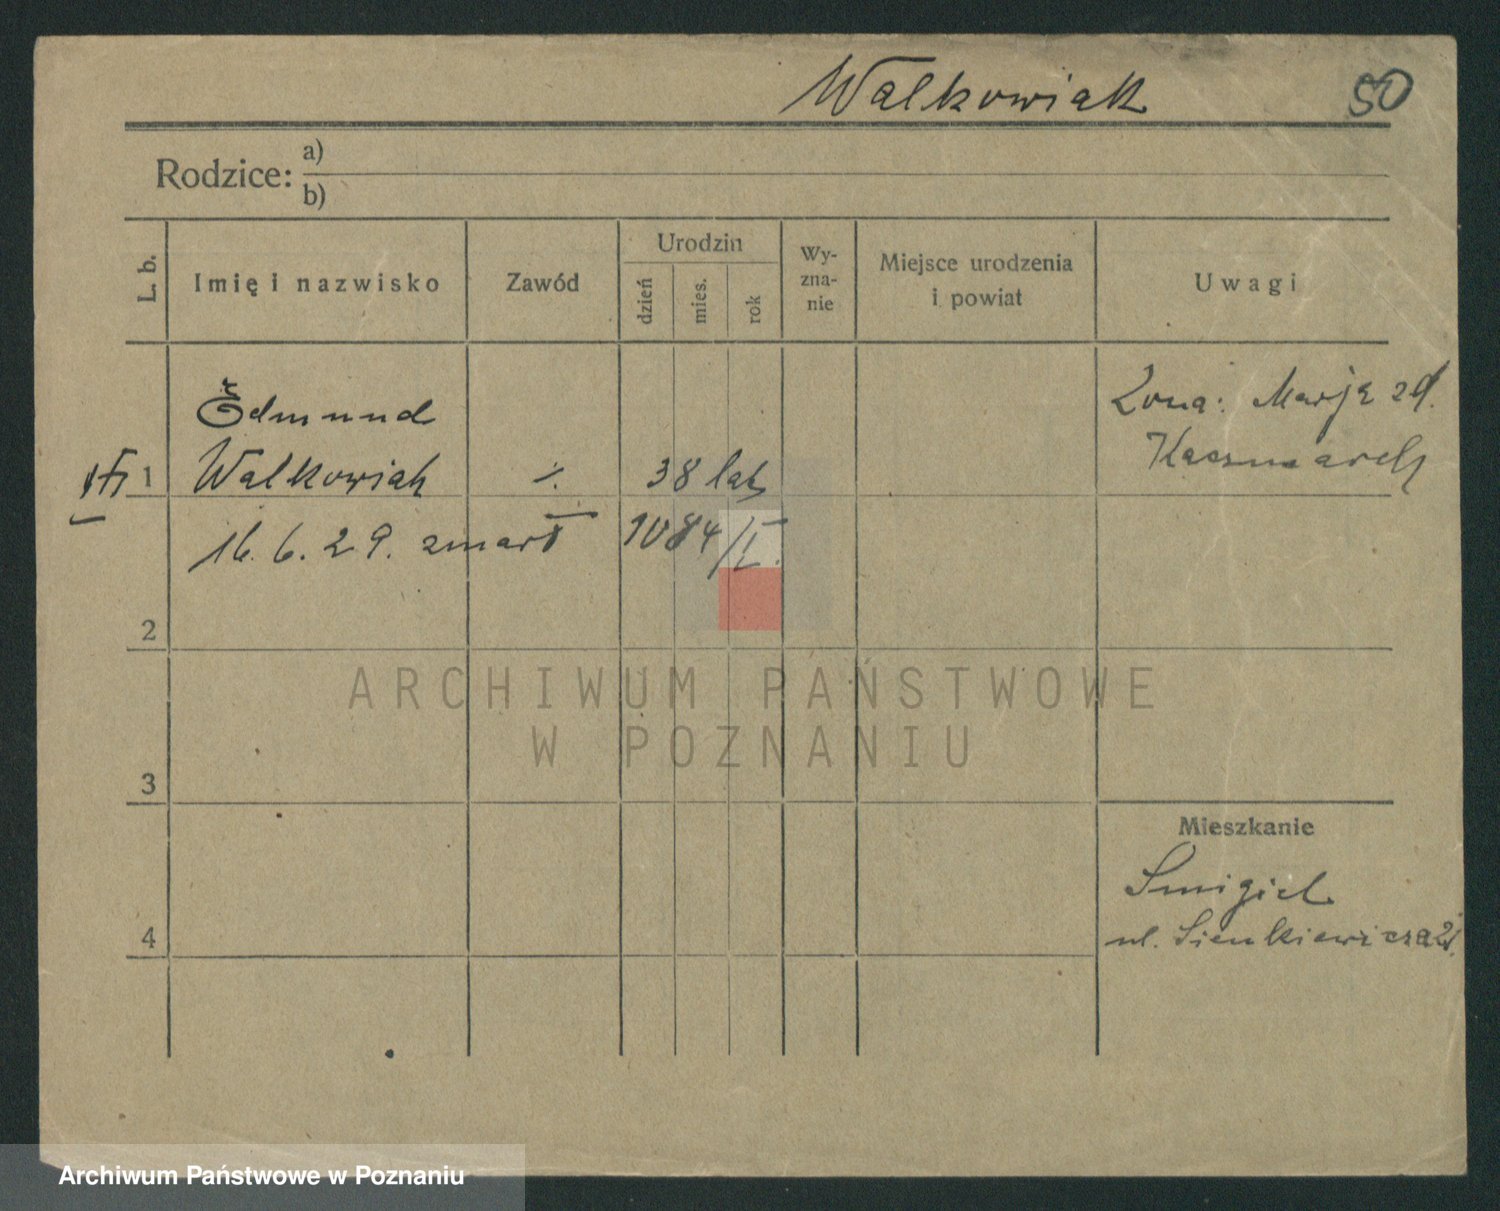 Walkowiak 50
Rodzice: a)
b)
L. b. Imię i nazwisko Zawód Urodzin dzień mies. rok Wy-zna-nie Miejsce urodzenia i powiat Uwagi
Edmund
1 Walkowiak ·/. 38 lat
Żona: Marja zd.
Kaczmarek
16. 6. 29. zmarł 1084/I.
2
3
4
Mieszkanie
Smigiel
ul. Sienkiewicza
ARCHIWUM PAŃSTWOWE
W POZNANIU
Archiwum Państwowe w Poznaniu